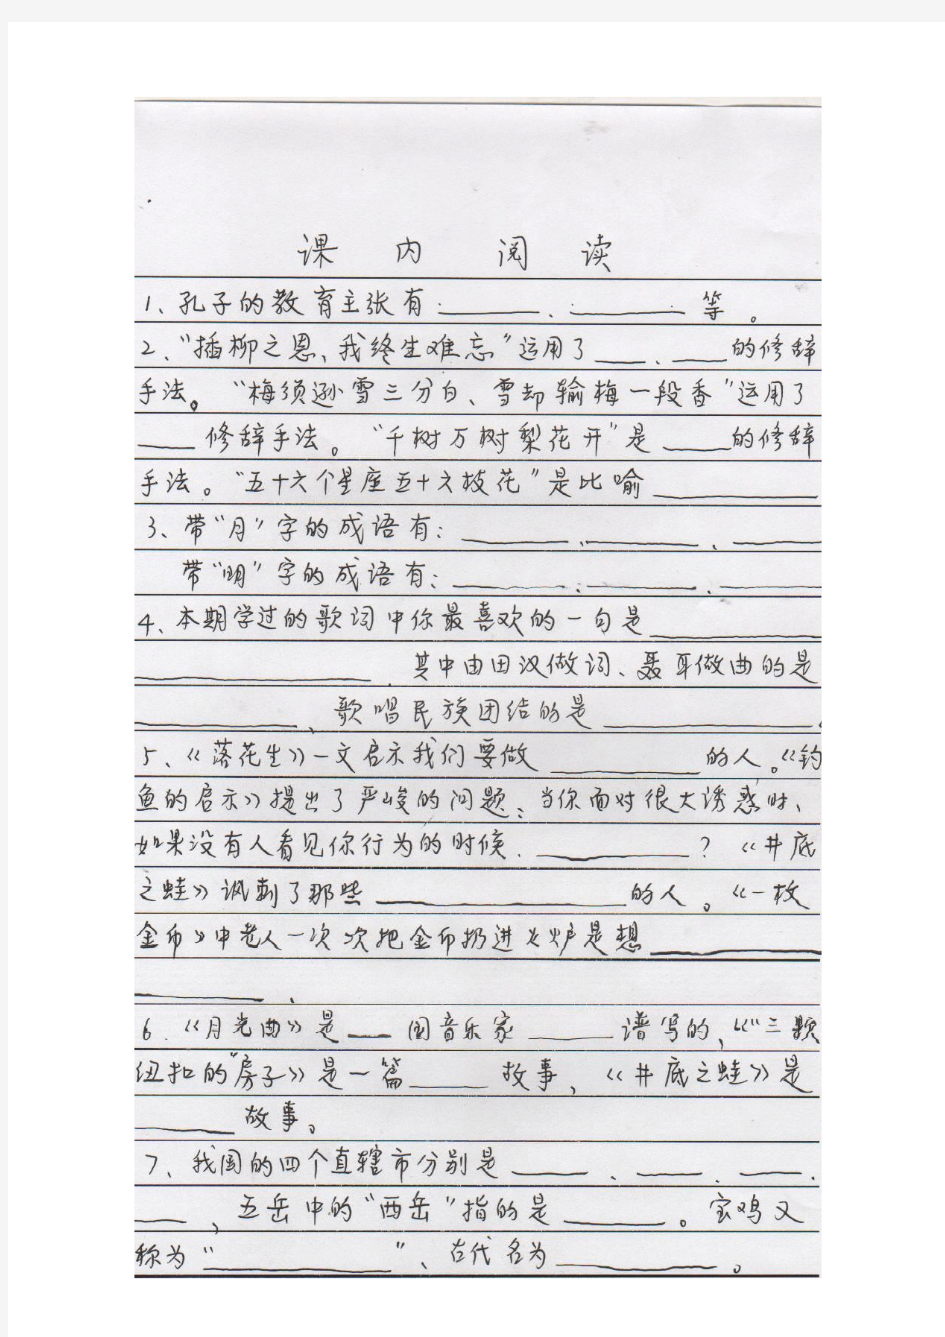 课内阅读
1、孔子的教育主张有:______、:______等。
2、“插柳之恩、我终生难忘”运用了___、___的修辞
手法。“梅须逊雪三分白、雪却输梅一段香”运用了
___修辞手法。“千树万树梨花开”是____的修辞
手法。“五十六个星座五十六枝花”是比喻________
3、带“月”字的成语有:______、______、______
带“明”字的成语有:______、______、______
4、本期学过的歌词中你最喜欢的一句是________
____________. 其中由田汉做词、聂耳做曲的是
________、歌唱民族团结的是__________.
5、《落花生》一文启示我们要做________的人。《钓
鱼的启示》提出了严峻的问题:当你面对很大诱惑时、
如果没有人看见你行为的时候.________?《井底
之蛙》讽刺了那些____________的人。《一枚
金币》中老人一次次把金币扔进火炉是想________
________、
6.《月光曲》是___国音乐家____谱写的,《“三颗
纽扣的”房子》是一篇____故事,《井底之蛙》是
_____故事。
7、我国的四个直辖市分别是____、____、____.
___,五岳中的“西岳”指的是_____。宝鸡又
称为“_________”、古代名为________。